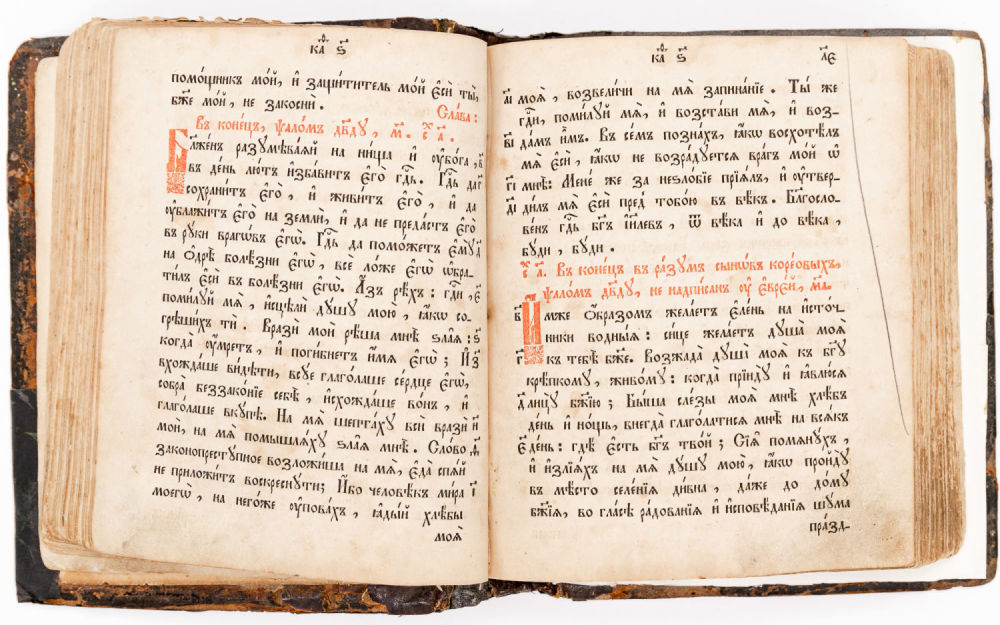 ка҃ ѕ҃
помо́щникъ мо́й, и҆ защи́титель мо́й є҆сѝ ты̀,
бж҃е мо́й, не закоснѝ.
Сла́ва:
Въ коне́цъ, ѱало́мъ дв҃ду, м҃. ч҃т. а҃.
Бл҃же́нъ разꙋмѣва́ѧй на ни́ща и҆ ᲂу҆бо́га, в҃
въ де́нь лю́тъ и҆зба́витъ є҆го̀ гдⷭ҇ь. Гдⷭ҇ь да г҃
сохрани́тъ є҆го̀, и҆ живи́тъ є҆го̀, и҆ да
ᲂу҆блажи́тъ є҆го̀ на землѝ, и҆ да не преда́стъ є҆го̀
въ рꙋ́ки врагѡ́въ є҆гѡ̀. Гдⷭ҇ь да помо́жетъ є҆мꙋ̀ д҃
на ѻ҆дрѣ̀ болѣ́зни є҆гѡ̀, всѐ ло́же є҆гѡ̀ ѡ҆бра-
ти́лъ є҆сѝ въ болѣ́зни є҆гѡ̀. А҆́зъ рѣ́хъ: гдⷭ҇и, є҃
поми́лꙋй мѧ̀, и҆сцѣлѝ дꙋ́шꙋ мою̀, ꙗ҆́кѡ со-
грѣши́хъ тѝ. Вразѝ моѝ рѣ́ша мнѣ̀ ѕла̑ѧ: ѕ҃
когда̀ ᲂу҆́мретъ, и҆ поги́бнетъ и҆́мѧ є҆гѡ̀; И҆ з҃
вхожда́ше ви́дѣти, всꙋ́е глаго́лаше се́рдце є҆гѡ̀,
собра̀ беззако́нїе себѣ̀, и҆схожда́ше во́нъ, и҆
глаго́лаше вкꙋ́пѣ. На мѧ̀ шепта́хꙋ всѝ вразѝ и҃
моѝ, на мѧ̀ помышлѧ́хꙋ ѕла̑ѧ мнѣ̀. Сло́во ѳ҃
законопрестꙋ́пное возложи́ша на мѧ̀, є҆да̀ спѧ́й
не приложи́тъ воскреснꙋ́ти; И҆́бо человѣ́къ ми́ра і҃
моегѡ̀, на него́же ᲂу҆пова́хъ, ꙗ҆ды́й хлѣ́бы
моѧ̑
ка҃ ѕ҃
л҃є
а҃і моѧ̑, возвели́чи на мѧ̀ запина́нїе. Ты́ же
гдⷭ҇и, поми́лꙋй мѧ̀, и҆ возста́ви мѧ̀, и҆ воз-
в҃і да́мъ и҆̀мъ. Въ се́мъ позна́хъ, ꙗ҆́кѡ восхотѣ́лъ
мѧ̀ є҆сѝ, ꙗ҆́кѡ не возра́дꙋетсѧ вра́гъ мо́й ѡ҆
г҃і мнѣ̀: Мене́ же за неѕло́бїе прїѧ́лъ, и҆ ᲂу҆твер-
д҃і ди́лъ мѧ̀ є҆сѝ пред̾ тобо́ю въ вѣ́къ. Бл҃госло-
ве́нъ гдⷭ҇ь бг҃ъ і҆и҃левъ, ѿ вѣ́ка и҆ до вѣ́ка,
бꙋ́ди, бꙋ́ди.
ч҃т. а҃. Въ коне́цъ въ ра́зꙋмъ сынѡ́въ коре́овыхъ,
ѱало́мъ дв҃дꙋ, не надпи́санъ ᲂу҆ є҆вре́й, м҃а.
в҃ И҆́мже ѻ҆́бразомъ жела́етъ є҆ле́нь на и҆сто́ч-
ники водны́ѧ: си́це жела́етъ дꙋша̀ моѧ̀
г҃ къ тебѣ̀ бж҃е. Возжада̀ дꙋша̀ моѧ̀ къ бг҃ꙋ
крѣ́пкомꙋ, живо́мꙋ: когда̀ прїидꙋ̀ и҆ ꙗ҆влю́сѧ
д҃ лицꙋ̀ бж҃їю; Бы́ша сле́зы моѧ̑ мнѣ̀ хлѣ́бъ
де́нь и҆ но́щь, внегда̀ глаго́латисѧ мнѣ̀ на всѧ́къ
є҃ де́нь: гдѣ̀ є҆́сть бг҃ъ тво́й; Сїѧ̑ помѧнꙋ́хъ,
и҆ и҆злїѧ́хъ на мѧ̀ дꙋ́шꙋ мою̀, ꙗ҆́кѡ пройдꙋ̀
въ мѣ́сто селе́нїѧ ди́вна, да́же до до́мꙋ
бж҃їѧ, во гла́сѣ ра́дованїѧ и҆ и҆сповѣ́данїѧ шꙋ́ма
пра́зд-